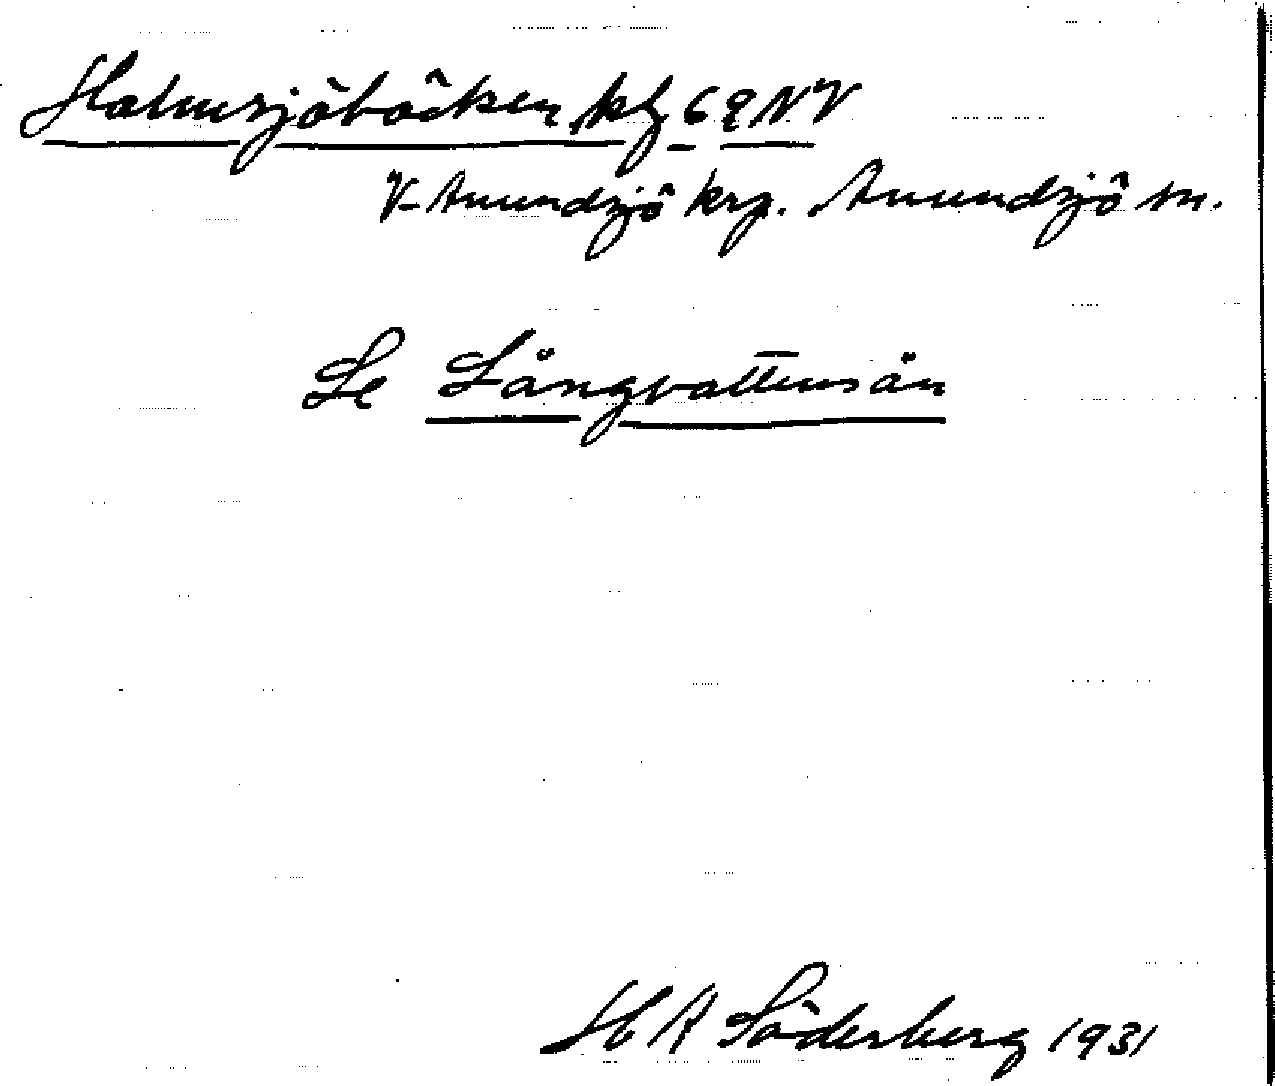 Holmsjöbäcken kbl 69 NV
V. Anundsjö krp. Anundsjö sn.
Se Långvattensån
H A Söderberg 1931